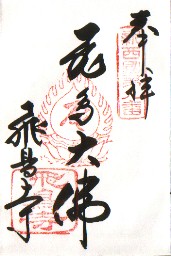 奉拝
飛鳥大佛
飛鳥寺